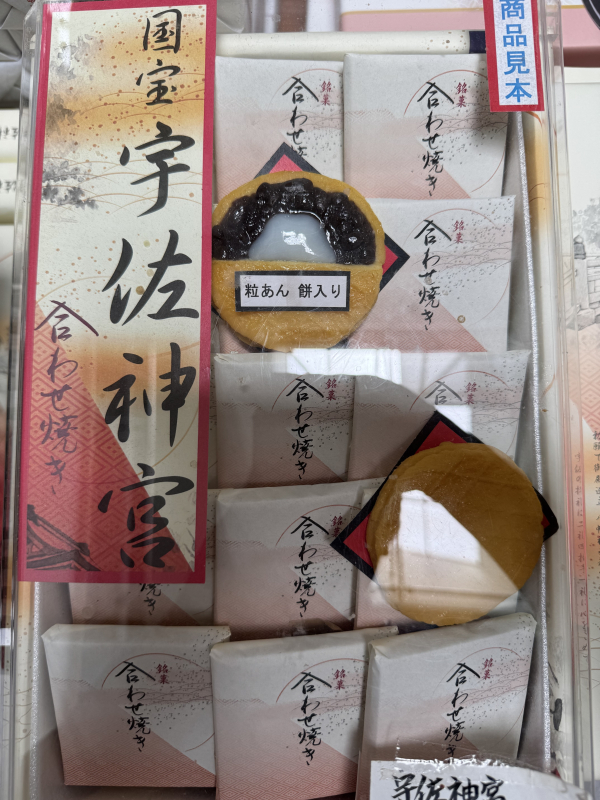 国宝宇佐神宮
合わせ焼き
商品見本
銘菓
合わせ
銘菓
合わせ焼き
粒あん 餅入り
銘菓
合わせ焼き
銘菓
合わせ焼き
銘菓
合わせ
銘菓
合わせ焼き
せ焼き
銘菓
合わせ焼き
銘菓
合わせ焼き
銘菓
合わせ焼き
宇佐神宮